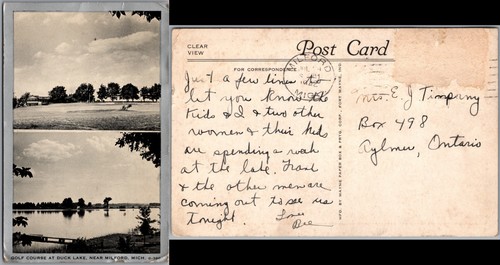 GOLF COURSE AT DUCK LAKE, NEAR MILFORD, MICH.
CLEAR
VIEW
Post Card
FOR CORRESPONDENCE
MILFORD
Just a few lines to
let you know the
kids & I & two other
women & their kids
are spending a week
at the lake. Frank
& the other men are
coming out to see us
tonight.
Love
MFG. BY WAYNE PAPER BOX & PRTG. CORP., FORT WAYNE, IND.
Mrs. E J
Box 498
Aylmer, Ontario